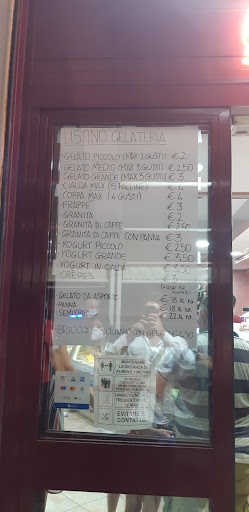 LISTINO GELATERIA
- GELATO PICCOLO (MAX 2 GUSTI) € 2
- GELATO MEDIO (MAX 3 GUSTI) € 2,50
- GELATO GRANDE (MAX 3 GUSTI) € 3
- CIALDA MAX (5 PALLINE) € 4
- COPPA MAX (4 GUSTI) € 4
- FRAPPE' € 3
- GRANITA € 2
- GRANITA DI CAFFE' € 2,50
- GRANITA DI CAFFE' CON PANNA € 3
- YOGURT PICCOLO € 2,50
- YOGURT GRANDE € 3,50
- YOGURT IN CIALDA
- CRÊPES
- GELATO DA ASPORTO € 18 AL KG
- PANNA € 18 AL KG
- SEMIFREDDI € 22 AL KG
CON GELATO
MANTENERE
LA DISTANZA DI
ALMENO 1 METRO
EVITARE IL
CONTATTO